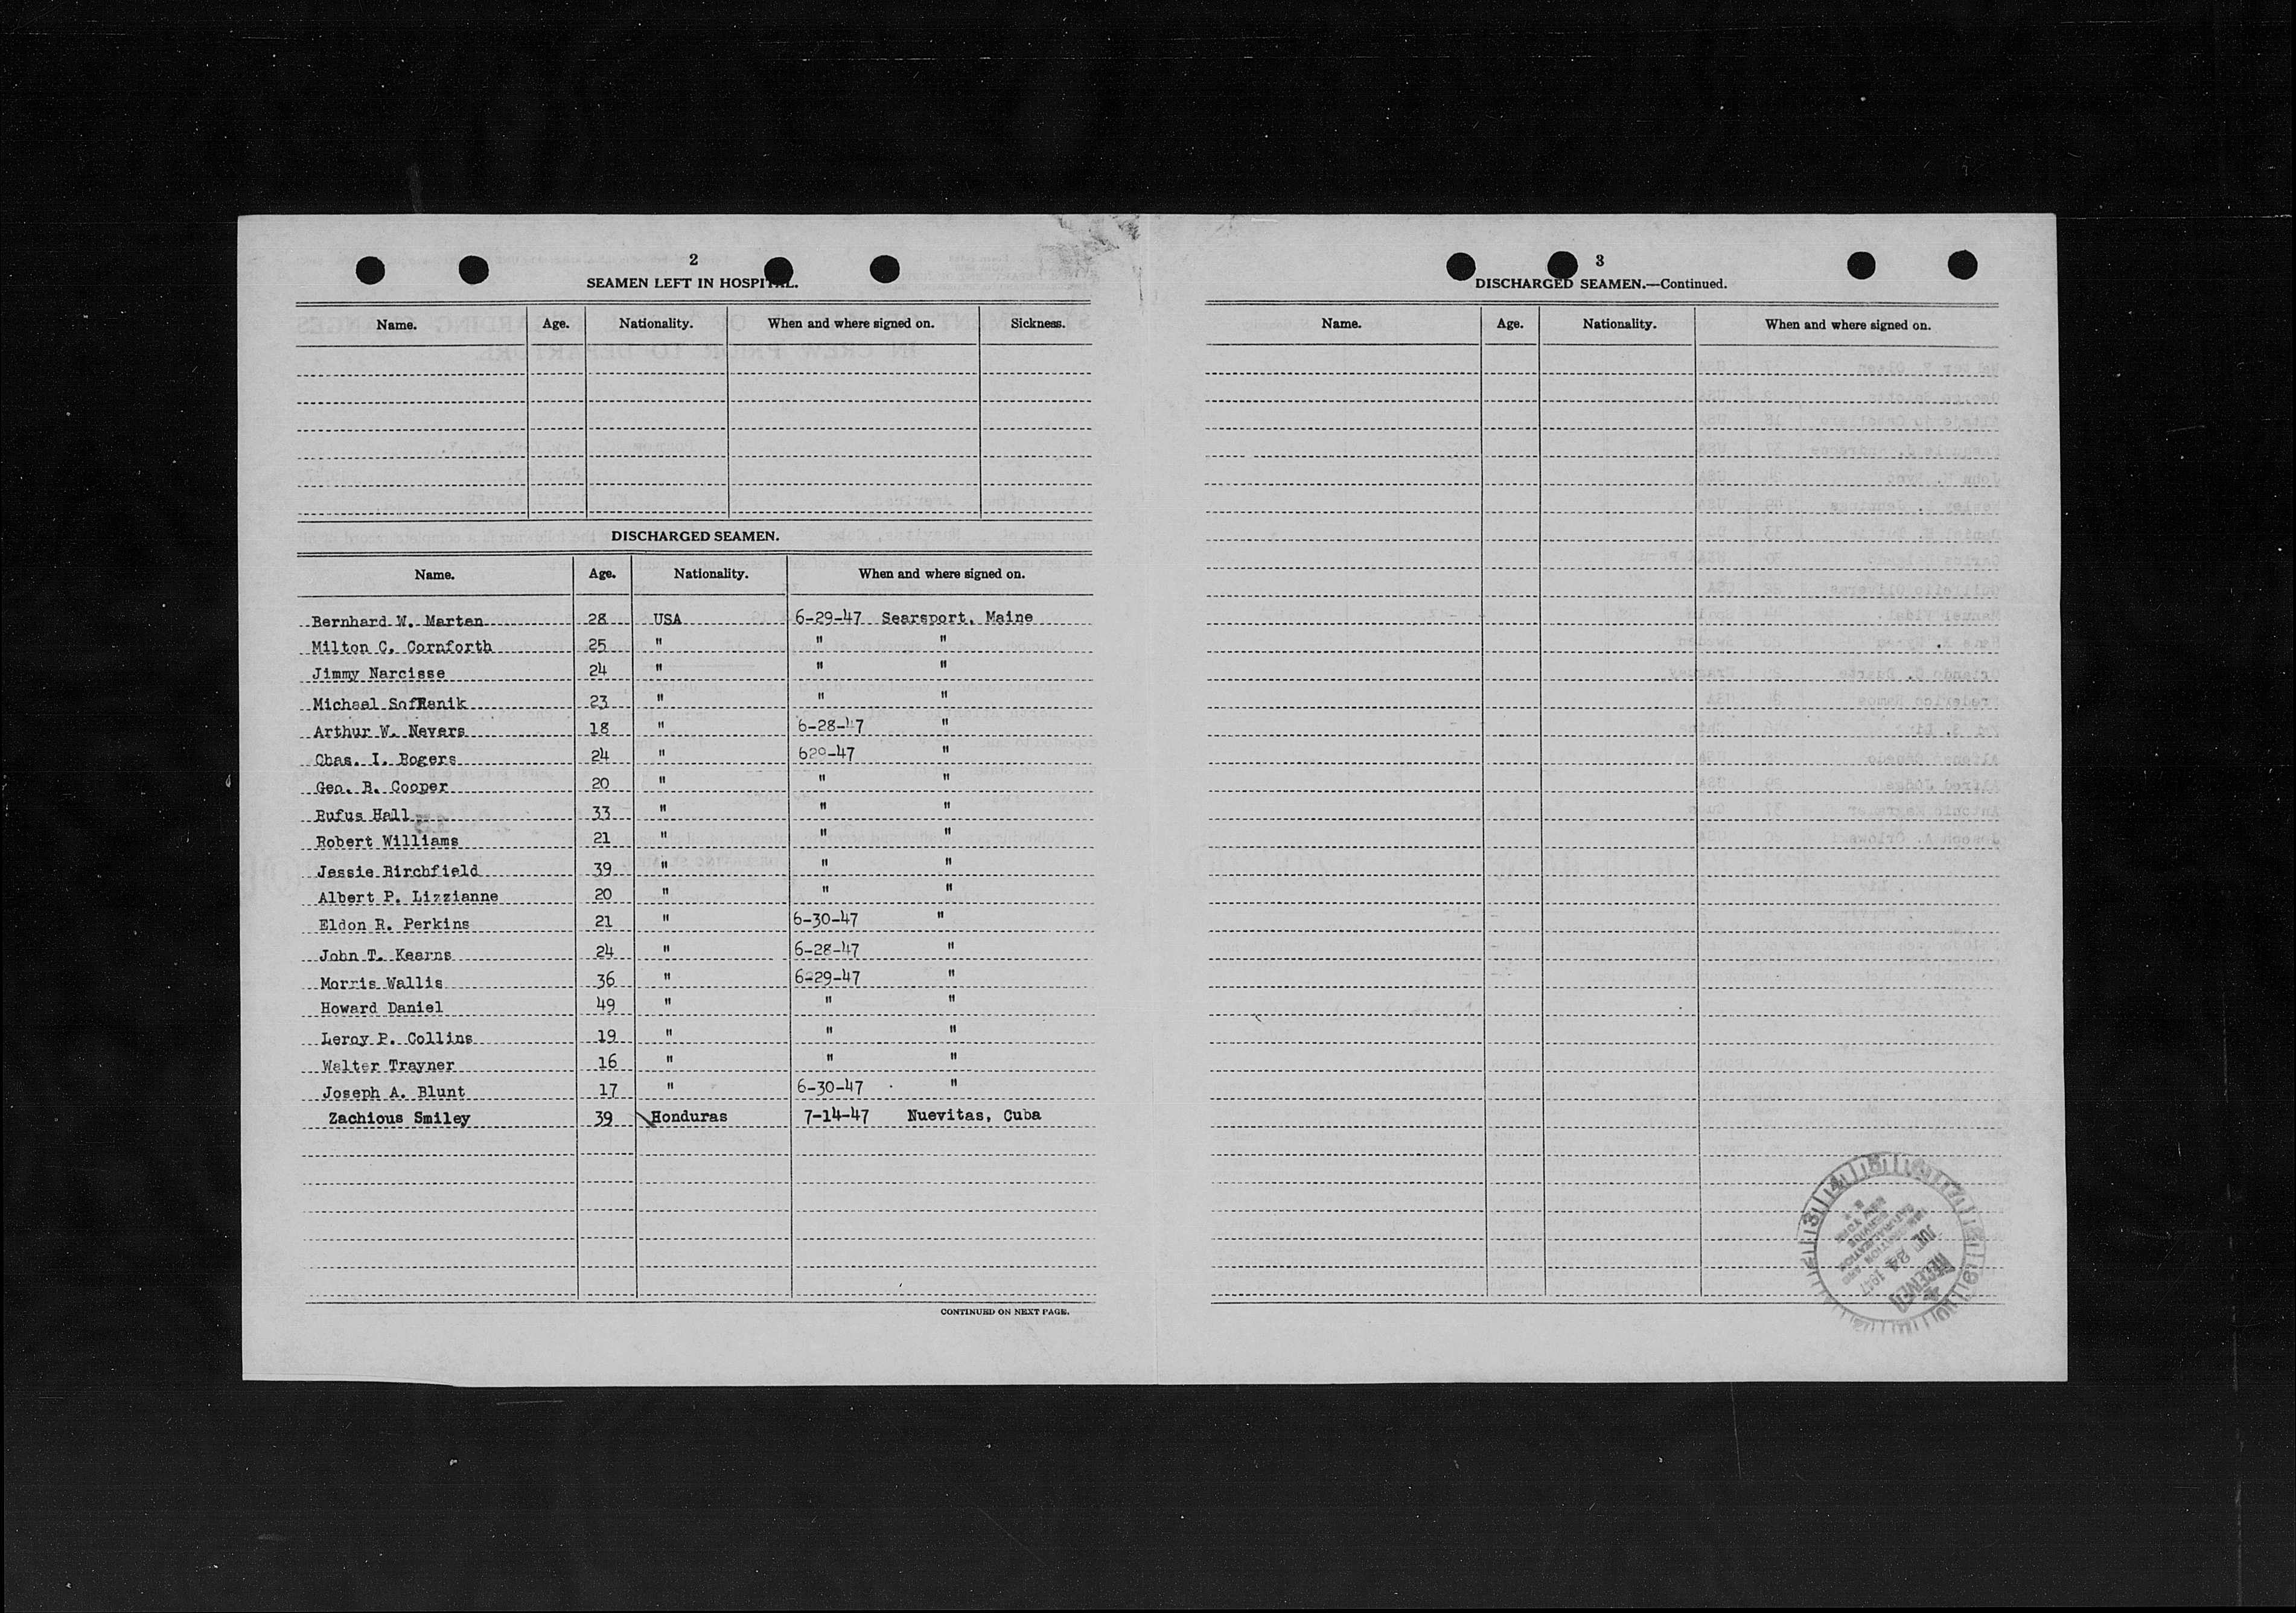 2
SEAMEN LEFT IN HOSPITAL.
Name. Age. Nationality. When and where signed on. Sickness.
DISCHARGED SEAMEN.
Name. Age. Nationality. When and where signed on.
Bernhard W. Marten 28 USA 6-29-47 Searsport, Maine
Milton C. Cornforth 25 " " "
Jimmy Narcisse 24 " " "
Michael 23 " " "
Arthur W. Nevers 18 " 6-28-47 "
Chas. I. Rogers 24 " 629-47 "
Geo. B. Cooper 20 " " "
Rufus Hall 33 " " "
Robert Williams 21 " " "
Jessie Birchfield 39 " " "
Albert P. Lizzianne 20 " " "
Eldon R. Perkins 21 " 6-30-47 "
John T. Kearns 24 " 6-28-47 "
Morris Wallis 36 " 6-29-47 "
Howard Daniel 49 " " "
Leroy P. Collins 19 " " "
Walter Trayner 16 " " "
Joseph A. Blunt 17 " 6-30-47 "
Zachious Smiley 39 Honduras 7-14-47 Nuevitas, Cuba
CONTINUED ON NEXT PAGE.
3
DISCHARGED SEAMEN.—Continued.
Name. Age. Nationality. When and where signed on.
RECEIVED
JUL 24 1947
IMMIGRATION AND
NATURALIZATION
SERVICE
NEW YORK